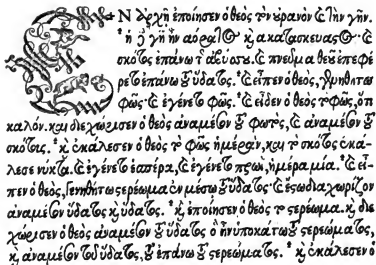 ΕΝ ἀρχῇ ἐποίησεν ὁ θεὸς τὸν οὐρανὸν καὶ τὴν γῆν.
ἡ δὲ γῆ ἦν ἀόρατος καὶ ἀκατασκεύαστος. καὶ
σκότος ἐπάνω τῆς ἀβύσσου. καὶ πνεῦμα θεοῦ ἐπεφέ
ρετο ἐπάνω τοῦ ὕδατος. καὶ εἶπεν ὁ θεός, γενηθήτω
φῶς. καὶ ἐγένετο φῶς. καὶ εἶδεν ὁ θεὸς τὸ φῶς, ὅτι
καλόν. καὶ διεχώρισεν ὁ θεὸς ἀναμέσον τοῦ φωτὸς, καὶ ἀναμέσον τοῦ
σκότους. καὶ ἐκάλεσεν ὁ θεὸς τὸ φῶς ἡμέραν, καὶ τὸ σκότος ἐκά
λεσε νύκτα. καὶ ἐγένετο ἑσπέρα, καὶ ἐγένετο πρωὶ, ἡμέρα μία. καὶ εἶ
πεν ὁ θεός, γενηθήτω στερέωμα ἐν μέσῳ τοῦ ὕδατος. καὶ ἔστω διαχωρίζον
ἀναμέσον ὕδατος καὶ ὕδατος. καὶ ἐποίησεν ὁ θεὸς τὸ στερέωμα. καὶ διε
χώρισεν ὁ θεὸς ἀναμέσον τοῦ ὕδατος ὃ ἦν ὑποκάτω τοῦ στερεώματος,
καὶ ἀναμέσον τοῦ ὕδατος, τοῦ ἐπάνω τοῦ στερεώματος. καὶ ἐκάλεσεν ὁ